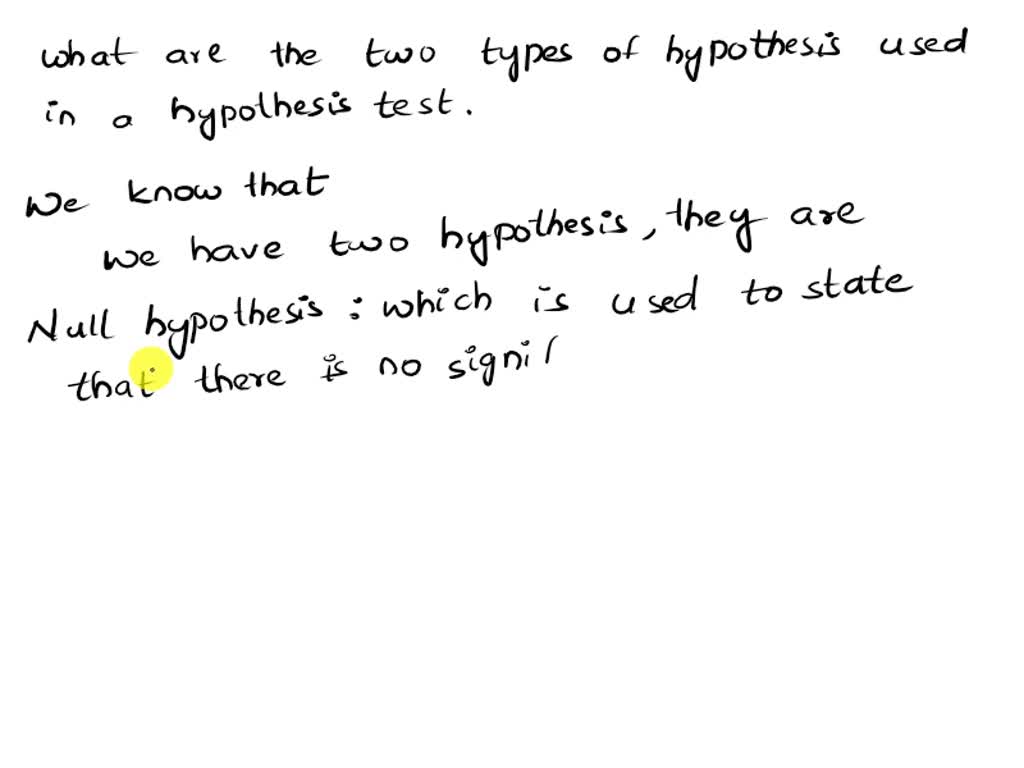 what are the two types of hypothesis used
in a hypothesis test.
We know that
we have two hypothesis, they are
Null hypothesis : which is used to state
that there is no signi